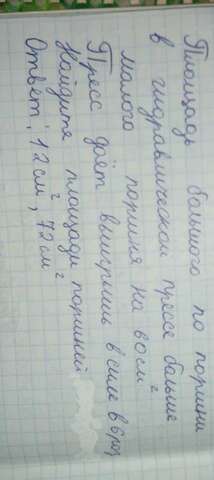 Площадь большого по поршни
в гидравлическом прессе больше
малого поршня на 60см²
Пресс даёт выигрыш в силе в 6 раз
Найдите площади поршней
Ответ: 12см², 72см²